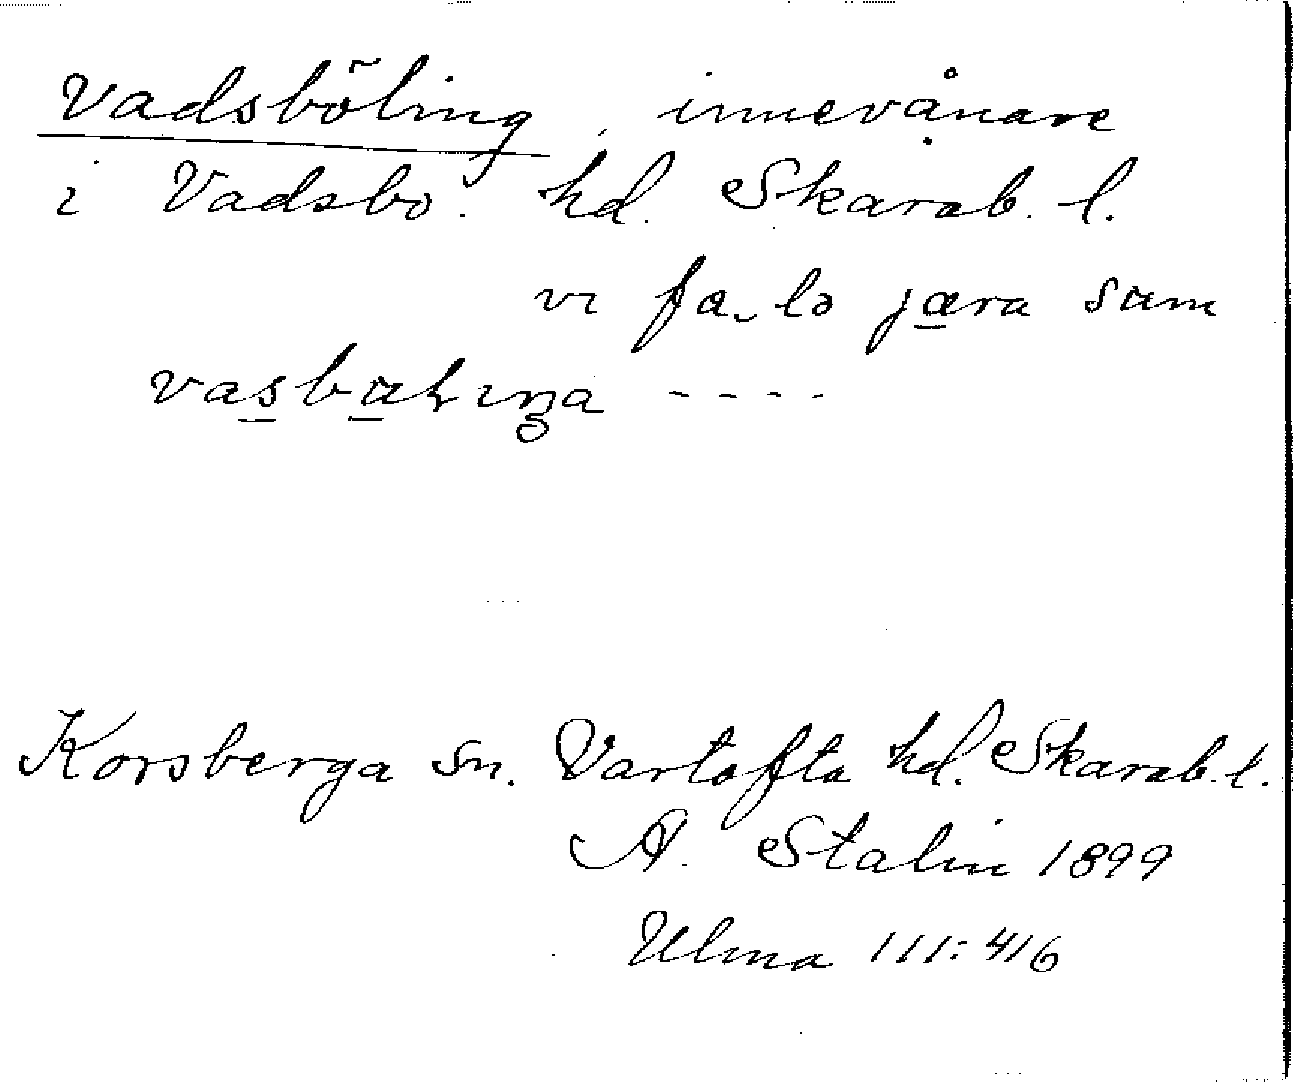 Vadsböling, innevånare
i Vadsbo. hd. Skarab. l.
vi fa lə jæra sum
Korsberga sn. Vartofta hd. Skarab. l.
A. Stalin 1899
Ulma 111:416